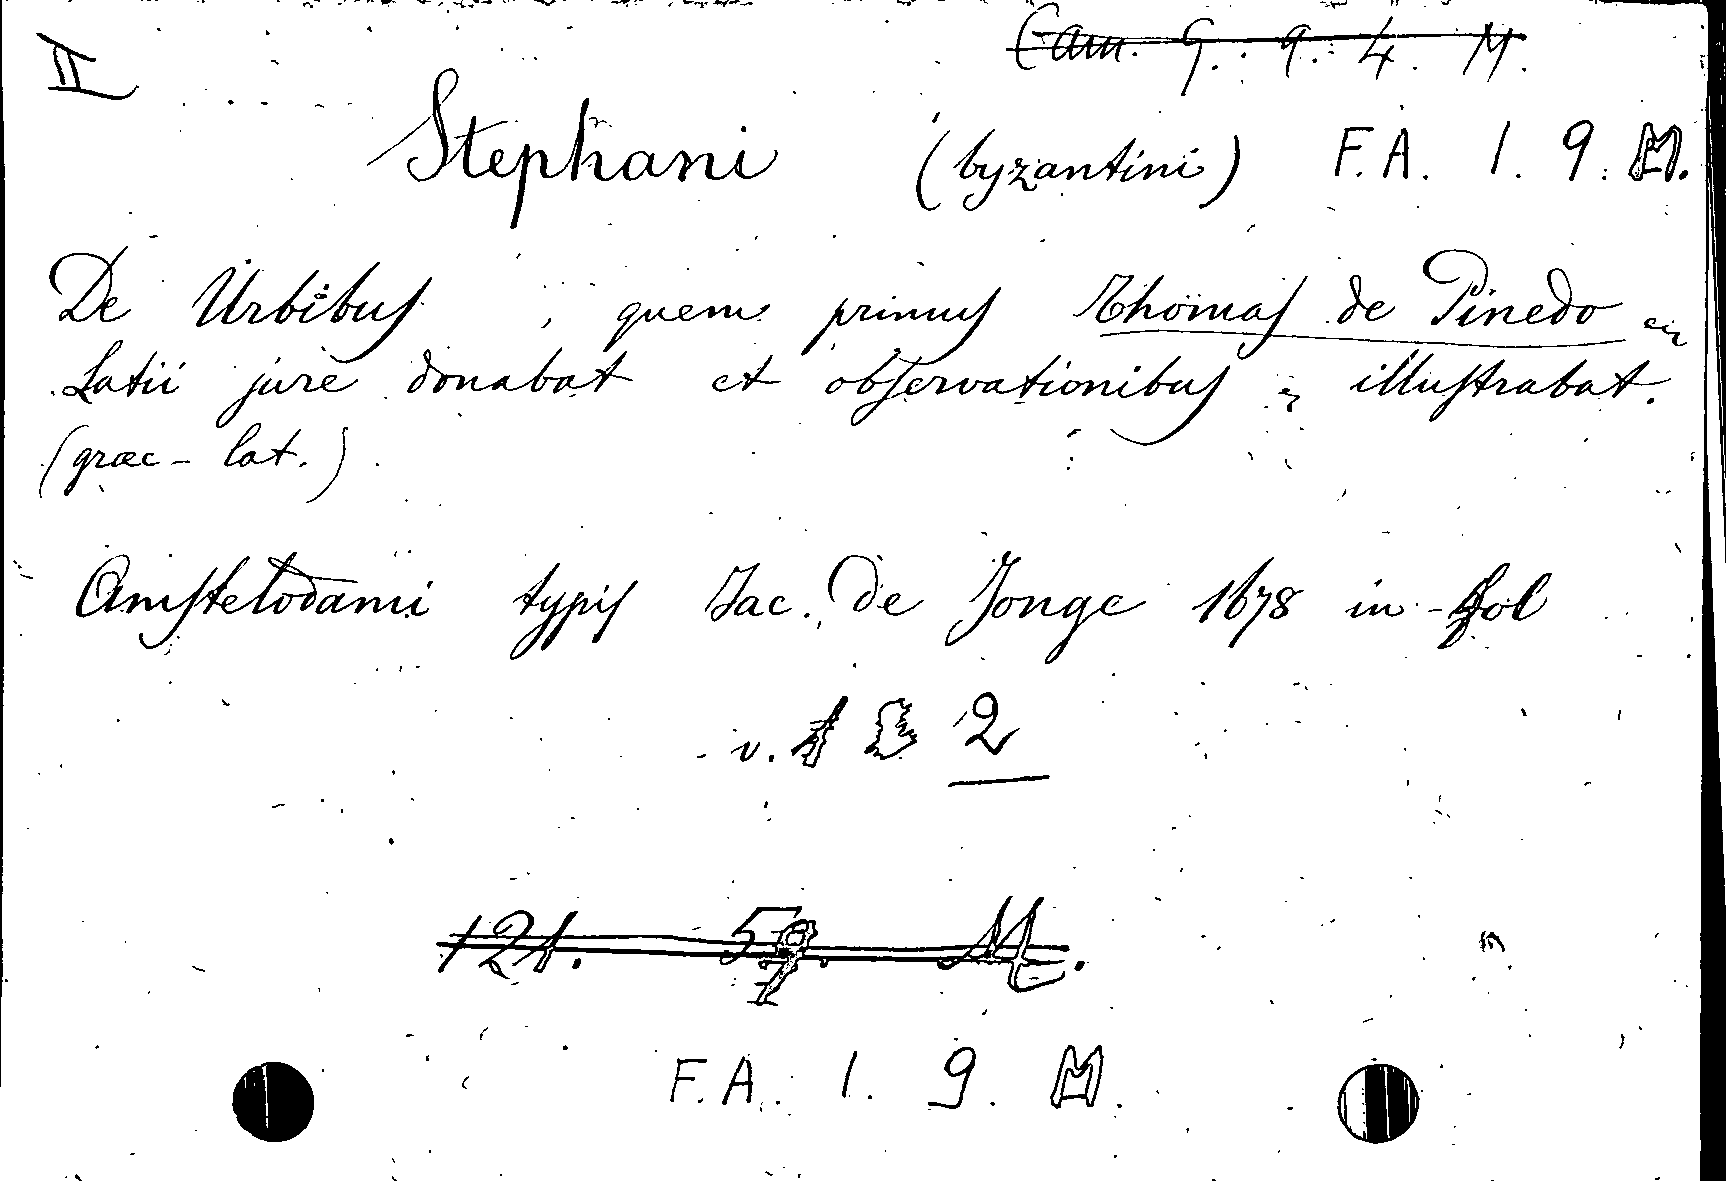 II
Cam. 9. 9. 4. M.
Stephani (byzantini) F.A. 1. 9. M.
De Urbibus, quem primus Thomas de Pinedo
Latii jure donabat et observationibus illustrabat.
(græc - lat.)
Amstelodami typis Jac. De Jonge 1678 in-fol
v. 2
121. 59. M.
F.A. 1. 9. M.